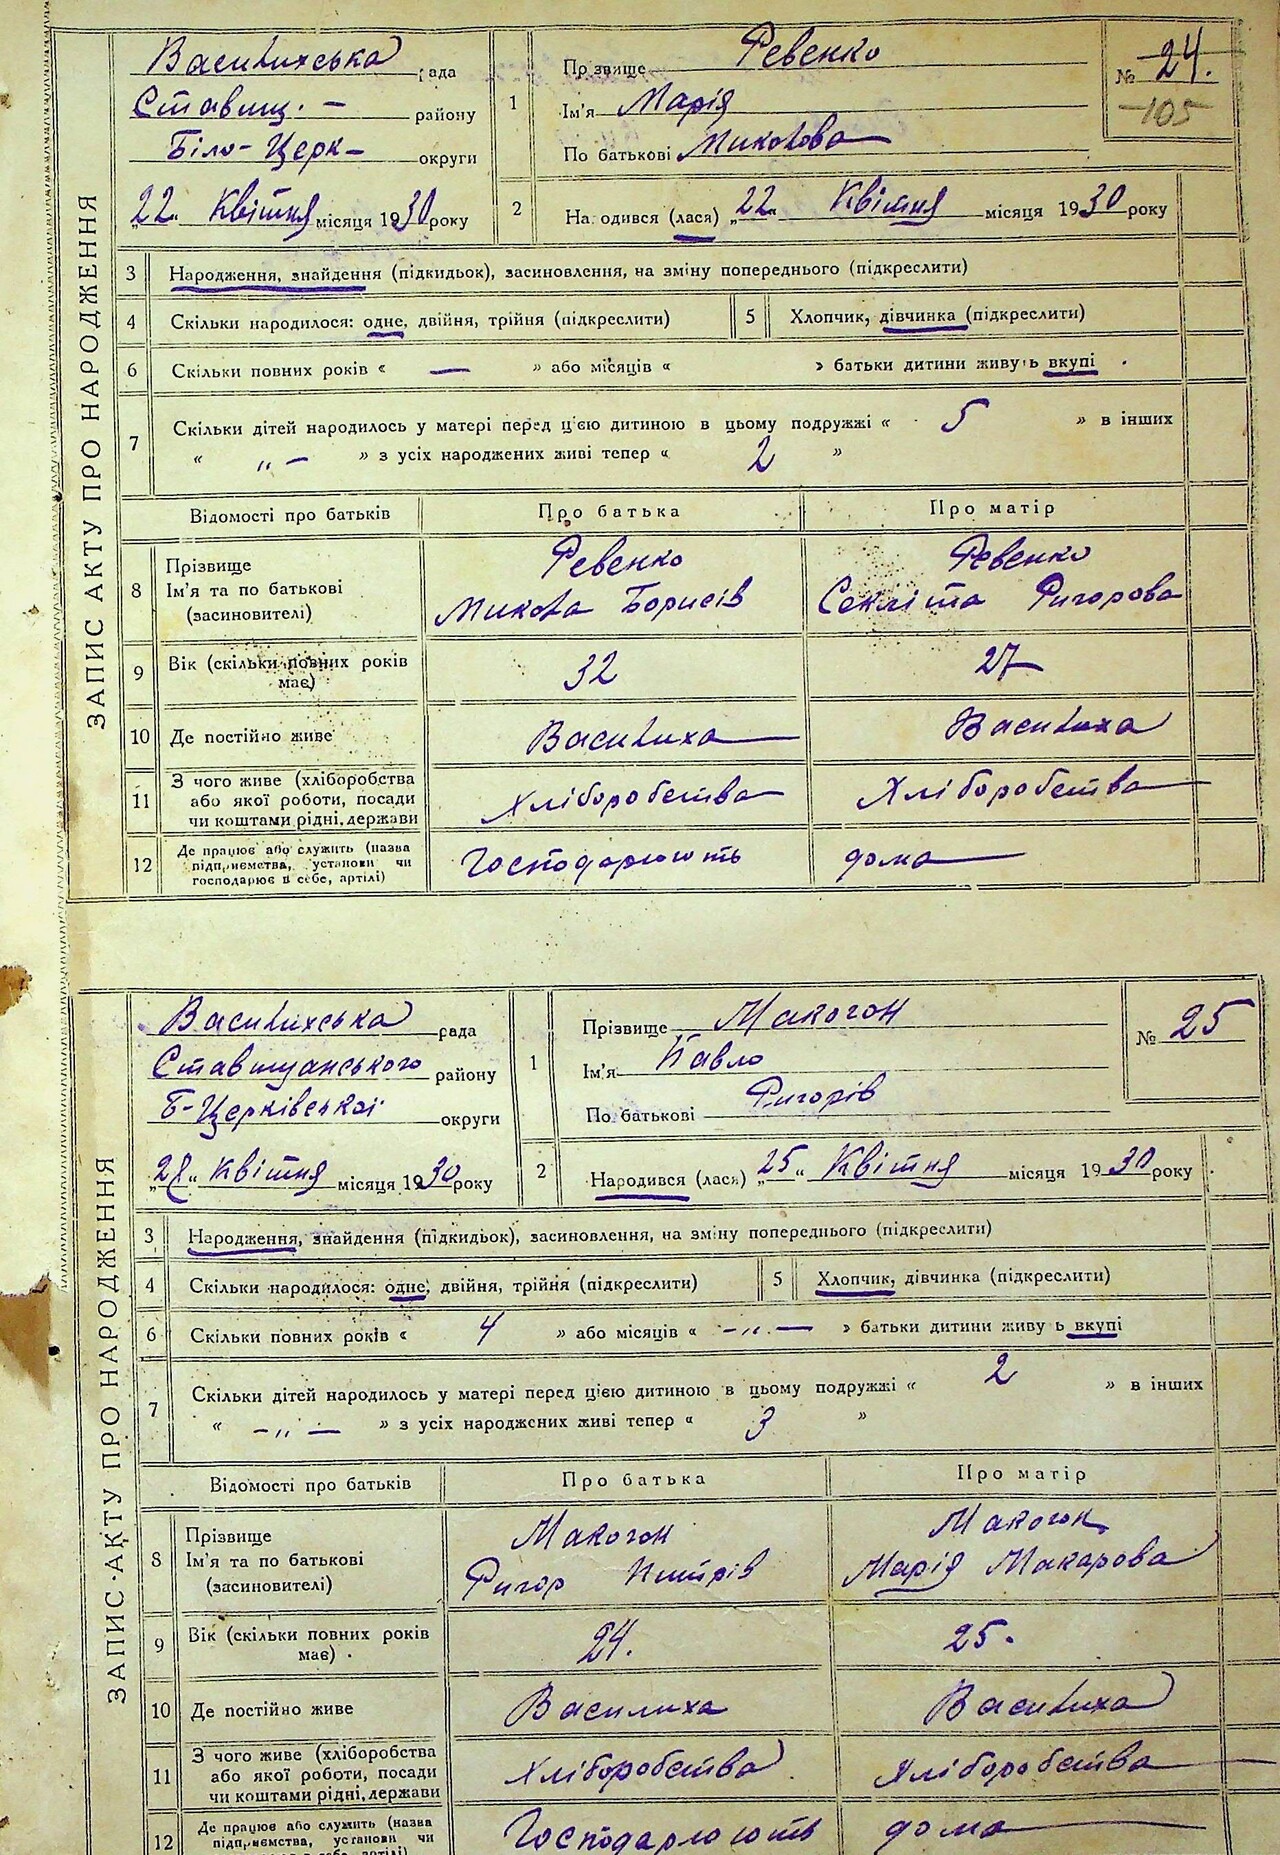 ЗАПИС АКТУ ПРО НАРОДЖЕННЯ
Василихська рада
Ставищ. – району
Біло-Церк– округи
„22“ Квітня місяця 1930 року
1 Прізвище Ревенко
Ім'я Марія
По батькові Миколова
№ 24.
105
2 На одився (лася) „22“ Квітня місяця 1930 року
3 Народження, знайдення (підкидьок), засиновлення, на зміну попереднього (підкреслити)
4 Скільки народилося: одне, двійня, трійня (підкреслити) 5 Хлопчик, дівчинка (підкреслити)
6 Скільки повних років « — » або місяців « » батьки дитини живуть вкупі
7 Скільки дітей народилось у матері перед цією дитиною в цьому подружжі « 5 » в інших
« „ – » з усіх народжених живі тепер « 2 »
Відомості про батьків Про батька Про матір
8 Прізвище Ревенко Ревенко
Ім'я та по батькові Микола Борисів Секліта Ригорова
(засиновителі)
9 Вік (скільки повних років має) 32 27
10 Де постійно живе Василиха Василиха
11 З чого живе (хліборобства
або якої роботи, посади Хліборобства Хліборобства
чи коштами рідні, держави
12 Де працює або служить (назва
підприємства, установи чи Господарюють дома
господарює в себе, артілі)
ЗАПИС АКТУ ПРО НАРОДЖЕННЯ
Василихська рада
Ставищанського району
Б-Церківської округи
„28“ Квітня місяця 1930 року
1 Прізвище Макогон
Ім'я Павло
По батькові Ригорів
№ 25
2 Народився (лася) „25“ Квітня місяця 1930 року
3 Народження, знайдення (підкидьок), засиновлення, на зміну попереднього (підкреслити)
4 Скільки народилося: одне, двійня, трійня (підкреслити) 5 Хлопчик, дівчинка (підкреслити)
6 Скільки повних років « 4 » або місяців « –„– » батьки дитини живу ь вкупі
7 Скільки дітей народилось у матері перед цією дитиною в цьому подружжі « 2 » в інших
« –„– » з усіх народжених живі тепер « 3 »
Відомості про батьків Про батька Про матір
8 Прізвище Макогон Макогон
Ім'я та по батькові Ригор Марія Макарова
(засиновителі)
9 Вік (скільки повних років має) 24. 25.
10 Де постійно живе Василиха Василиха
11 З чого живе (хліборобства
або якої роботи, посади Хліборобства Хліборобства
чи коштами рідні, держави
12 Де працює або служить (назва
підприємства, установи чи Господарюють дома